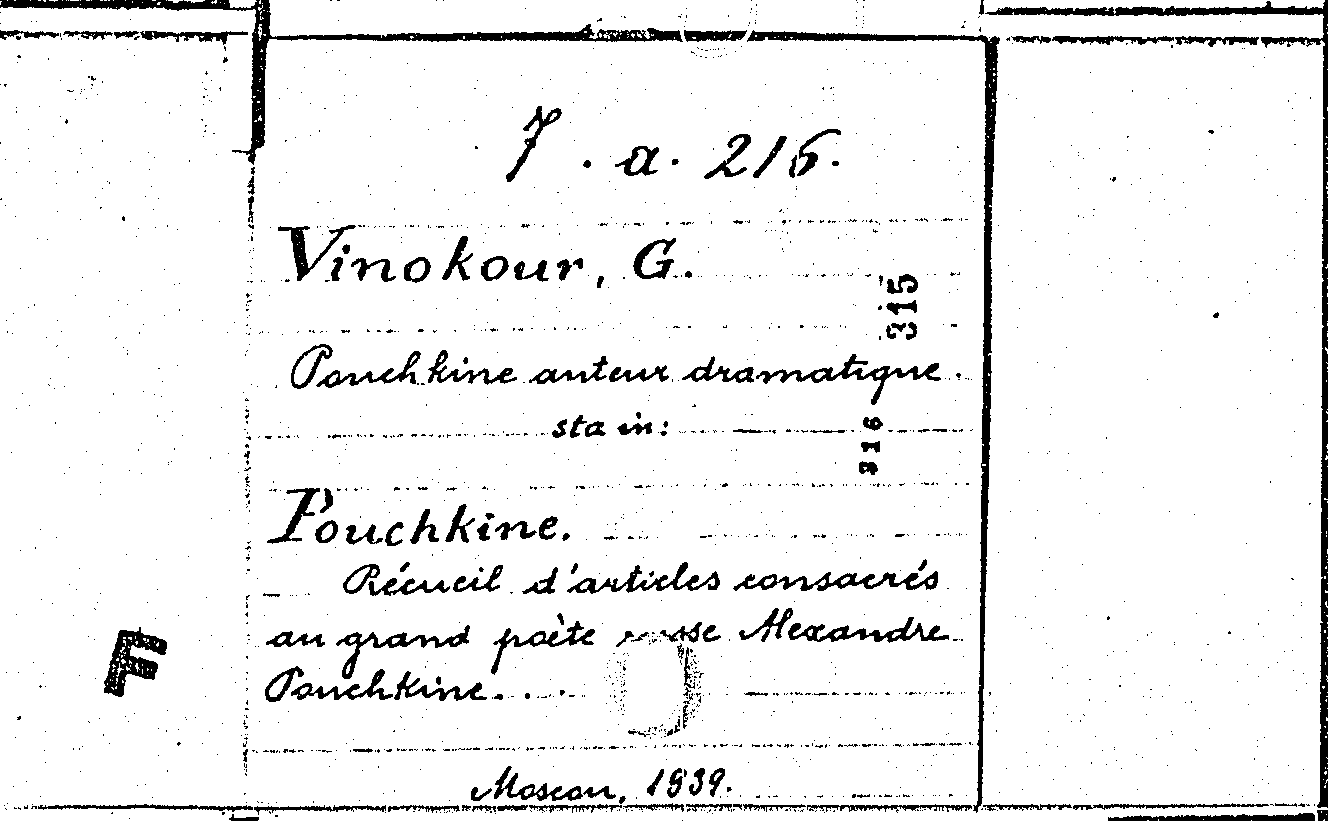 7 . a. 216.
Vinokour, G.
315
Pouchkine auteur dramatique.
sta in:
316
Pouchkine.
Récueil d'articles consacrés
au grand poète russe Alexandre
F
Pouchkine. . . .
Moscou, 1939.